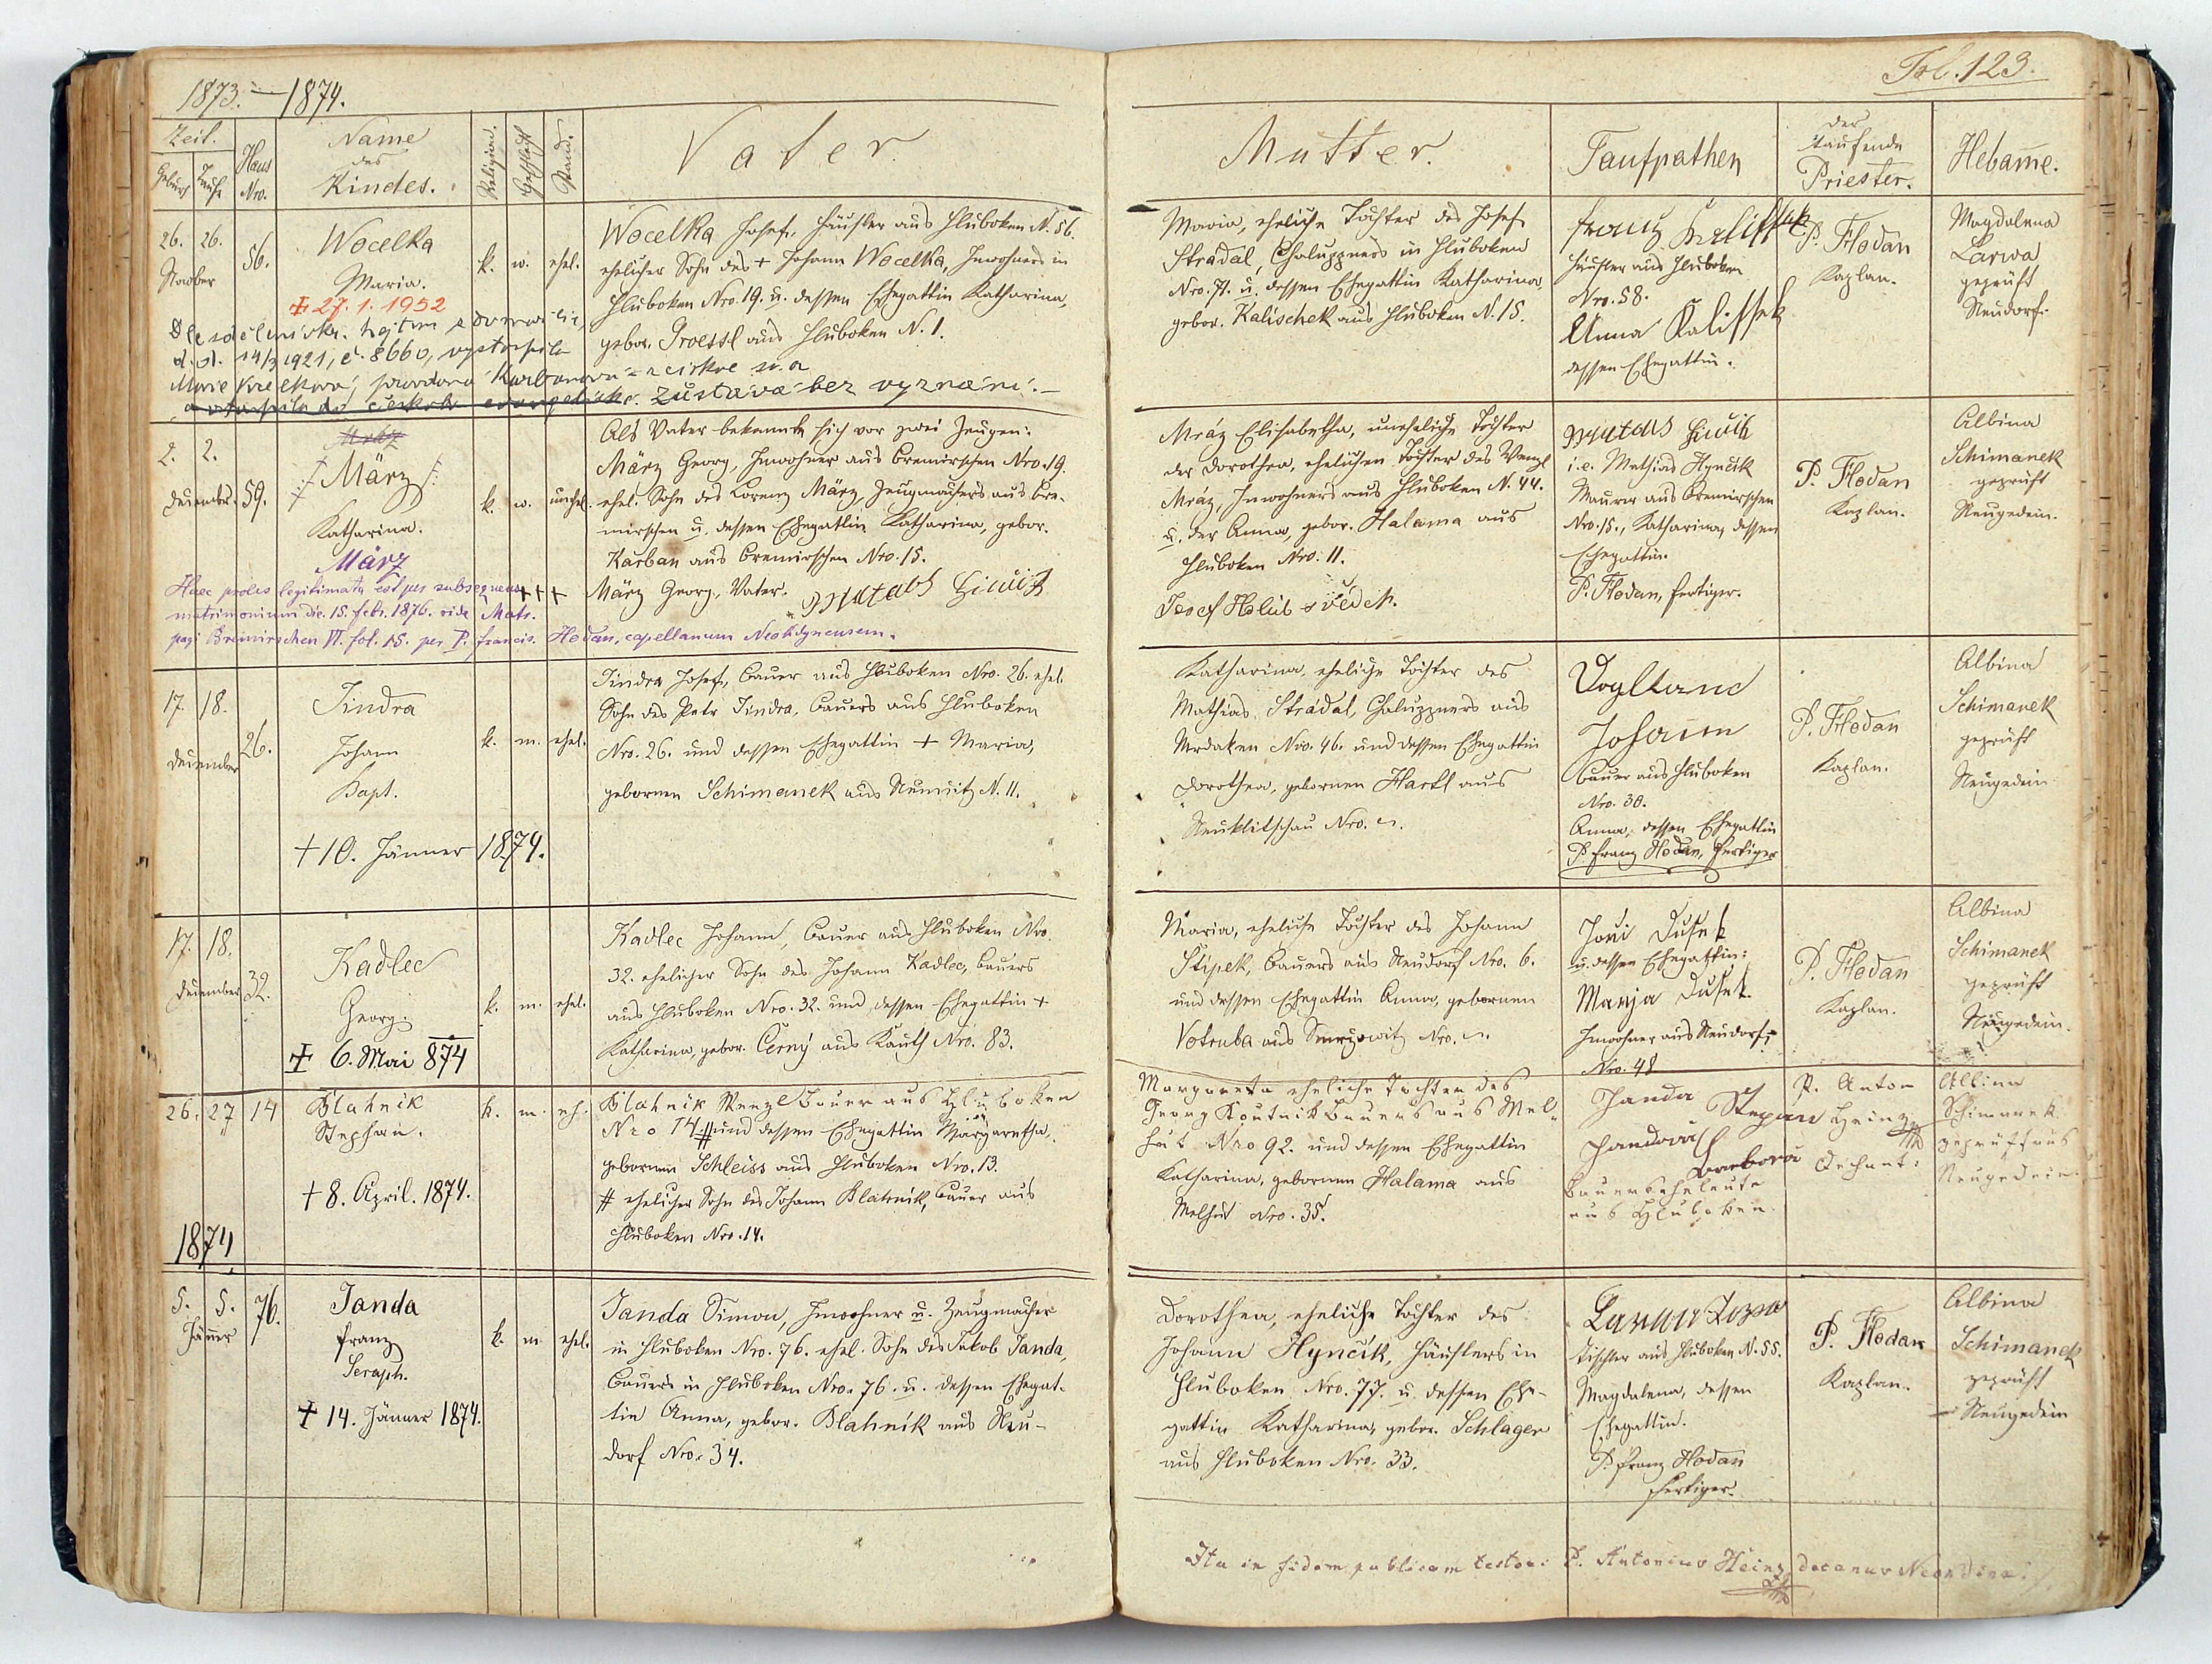 1873. — 1874.
Fol. 123.
Zeit.
Geburt
Taufe
Haus
Nro.
Name
des
Kindes.
Religion.
Geschlecht
Stand.
Vater.
Mutter.
Taufpathen
der
taufende
Priester.
Hebame.
26. 26.
56.
Wocelka
Maria.
k. w. ehel.
✝ 27. 1. 1952
d.d. 14/3 1921, č. 8660, vystoupila
zůstává bez vyznání. —
Wocelka Josef, Häusler aus Hluboken N. 56.
ehelicher Sohn des + Johann Wocelka, Inwohners in
Hluboken Nro. 19. u. dessen Ehegattin Katharina,
gebor. Groessl aus Hluboken N. 1.
Maria, eheliche Tochter des Josef
Strádal, Chaluppners in Hluboken
Nro. 71. u. dessen Ehegattin Katharina
gebor. Kalischek aus Hluboken N. 15.
Franz
Häusler aus Hluboken
Nro. 58.
Anna Kalissek
dessen Ehegattin.
P. Hodan
Kaplan.
Magdalena
Larwa
geprüft
Neudorf.
2. 2.
December.
59.
März
Katharina.
März
k. w. unehel.
Als Vater bekannte sich vor zwei Zeugen:
März Georg, Inwohner aus Bremirschen Nro. 19.
ehel. Sohn des Lorenz März, Zeugmachers aus Bre-
mirschen u. dessen Ehegattin Katharina, gebor.
Karban aus Bremirschen Nro. 15.
+++ März Georg, Vater.
Haec proles legitimata est per subsequens
matrimonium die 15. febr. 1876. vide Matr.
pagi Bremirschen VI. fol. 15. per P. Francis. Hodan, capellanum Neokdynensem.
Mráz Elisabetha, uneheliche Tochter
der Dorothea, ehelichen Tochter des Wenzl
Mráz, Inwohners aus Hluboken N. 44.
u. der Anna, gebor. Halama aus
Hluboken Nro. 11.
Josef Holub svědek.
i. e. Mathias Hynčik
Maurer aus Bremirschen
Nro. 15., Katharina, dessen
Ehegattin.
P. Hodan, Fertiger.
P. Hodan
Kaplan.
Albina
Schimanek
geprüft
Neugedein.
17. 18.
December
26.
Jindra
Johann
Bapt.
+ 10. Jänner 1874.
k. m. ehel.
Jindra Josef, Bauer aus Hluboken Nro. 26. ehel.
Sohn des Petr Jindra, Bauers aus Hluboken
Nro. 26. und dessen Ehegattin + Maria,
gebornen Schimanek aus N. 11.
Katharina, eheliche Tochter des
Mathias Strádal, Chaluppners aus
Mrdaken Nro. 46. und dessen Ehegattin
Dorothea, gebornen Hartl aus
Neuklitschau Nro.
Johann
Bauer aus Hluboken
Nro. 30.
Anna, dessen Ehegattin
P. Franz Hodan, Fertiger
P. Hodan
Kaplan.
Albina
Schimanek
geprüft
Neugedein
17. 18.
December
32.
Kadlec
Georg.
✝ 6. Mai 874
k. m. ehel.
Kadlec Johann, Bauer aus Hluboken Nro.
32. ehelicher Sohn des Johann Kadlec, Bauers
aus Hluboken Nro. 32. und dessen Ehegattin +
Katharina, gebor. Černý aus Kauth Nro. 83.
Maria, eheliche Tochter des Johann
Štípek, Bauers aus Neudorf Nro. 6.
und dessen Ehegattin Anna, gebornen
Votruba aus Nro.
Jiři Dušek
u. dessen Ehegattin:
Marja Dušek
Inwohner aus Neudorf
Nro. 48
P. Hodan
Kaplan.
Albina
Schimanek
geprüft
Neugedein.
26. 27 14
Blahnik
Stephan.
+ 8. April. 1874.
k. m. eh.
Blahnik Wenzl Bauer aus Hluboken
Nro 14 # und dessen Ehegattin Margaretha,
gebornen Schleiss aus Hluboken Nro. 13.
# ehelicher Sohn des Johann Blahnik, Bauer aus
Hluboken Nro. 14.
Margareta eheliche Tochter des
Georg Koutnik Bauers aus Mel-
hut Nro 92. und dessen Ehegattin
Katharina, gebornen Halama aus
Melhut Nro. 35.
Janda Stepan
Barbora
Bauerseheleute
aus Hluboken.
P. Anton
Heinz
Dechant.
Albina
Schimanek
geprüft aus
Neugedein.
1874
5. 5.
Jänner
76.
Janda
Franz
Seraph.
✝ 14. Jänner 1874.
k. m. ehel.
Janda Simon, Inwohner u. Zeugmacher
in Hluboken Nro. 76. ehel. Sohn des Jakob Janda,
Bauers in Hluboken Nro. 76. u. dessen Ehegat-
tin Anna, gebor. Blahnik aus Neu-
dorf Nro. 34.
Dorothea, eheliche Tochter des
Johann Hynčik, Häuslers in
Hluboken Nro. 77. u. dessen Ehe-
gattin Katharina, gebor. Schlager
aus Hluboken Nro. 33.
Tischler aus Hluboken N. 55.
Magdalena, dessen
Ehegattin.
P. Franz Hodan
Fertiger.
P. Hodan
Kaplan.
Albina
Schimanek
geprüft
Neugedein
Ita in fidem publicam testor: P. Antonius Heinz decanus